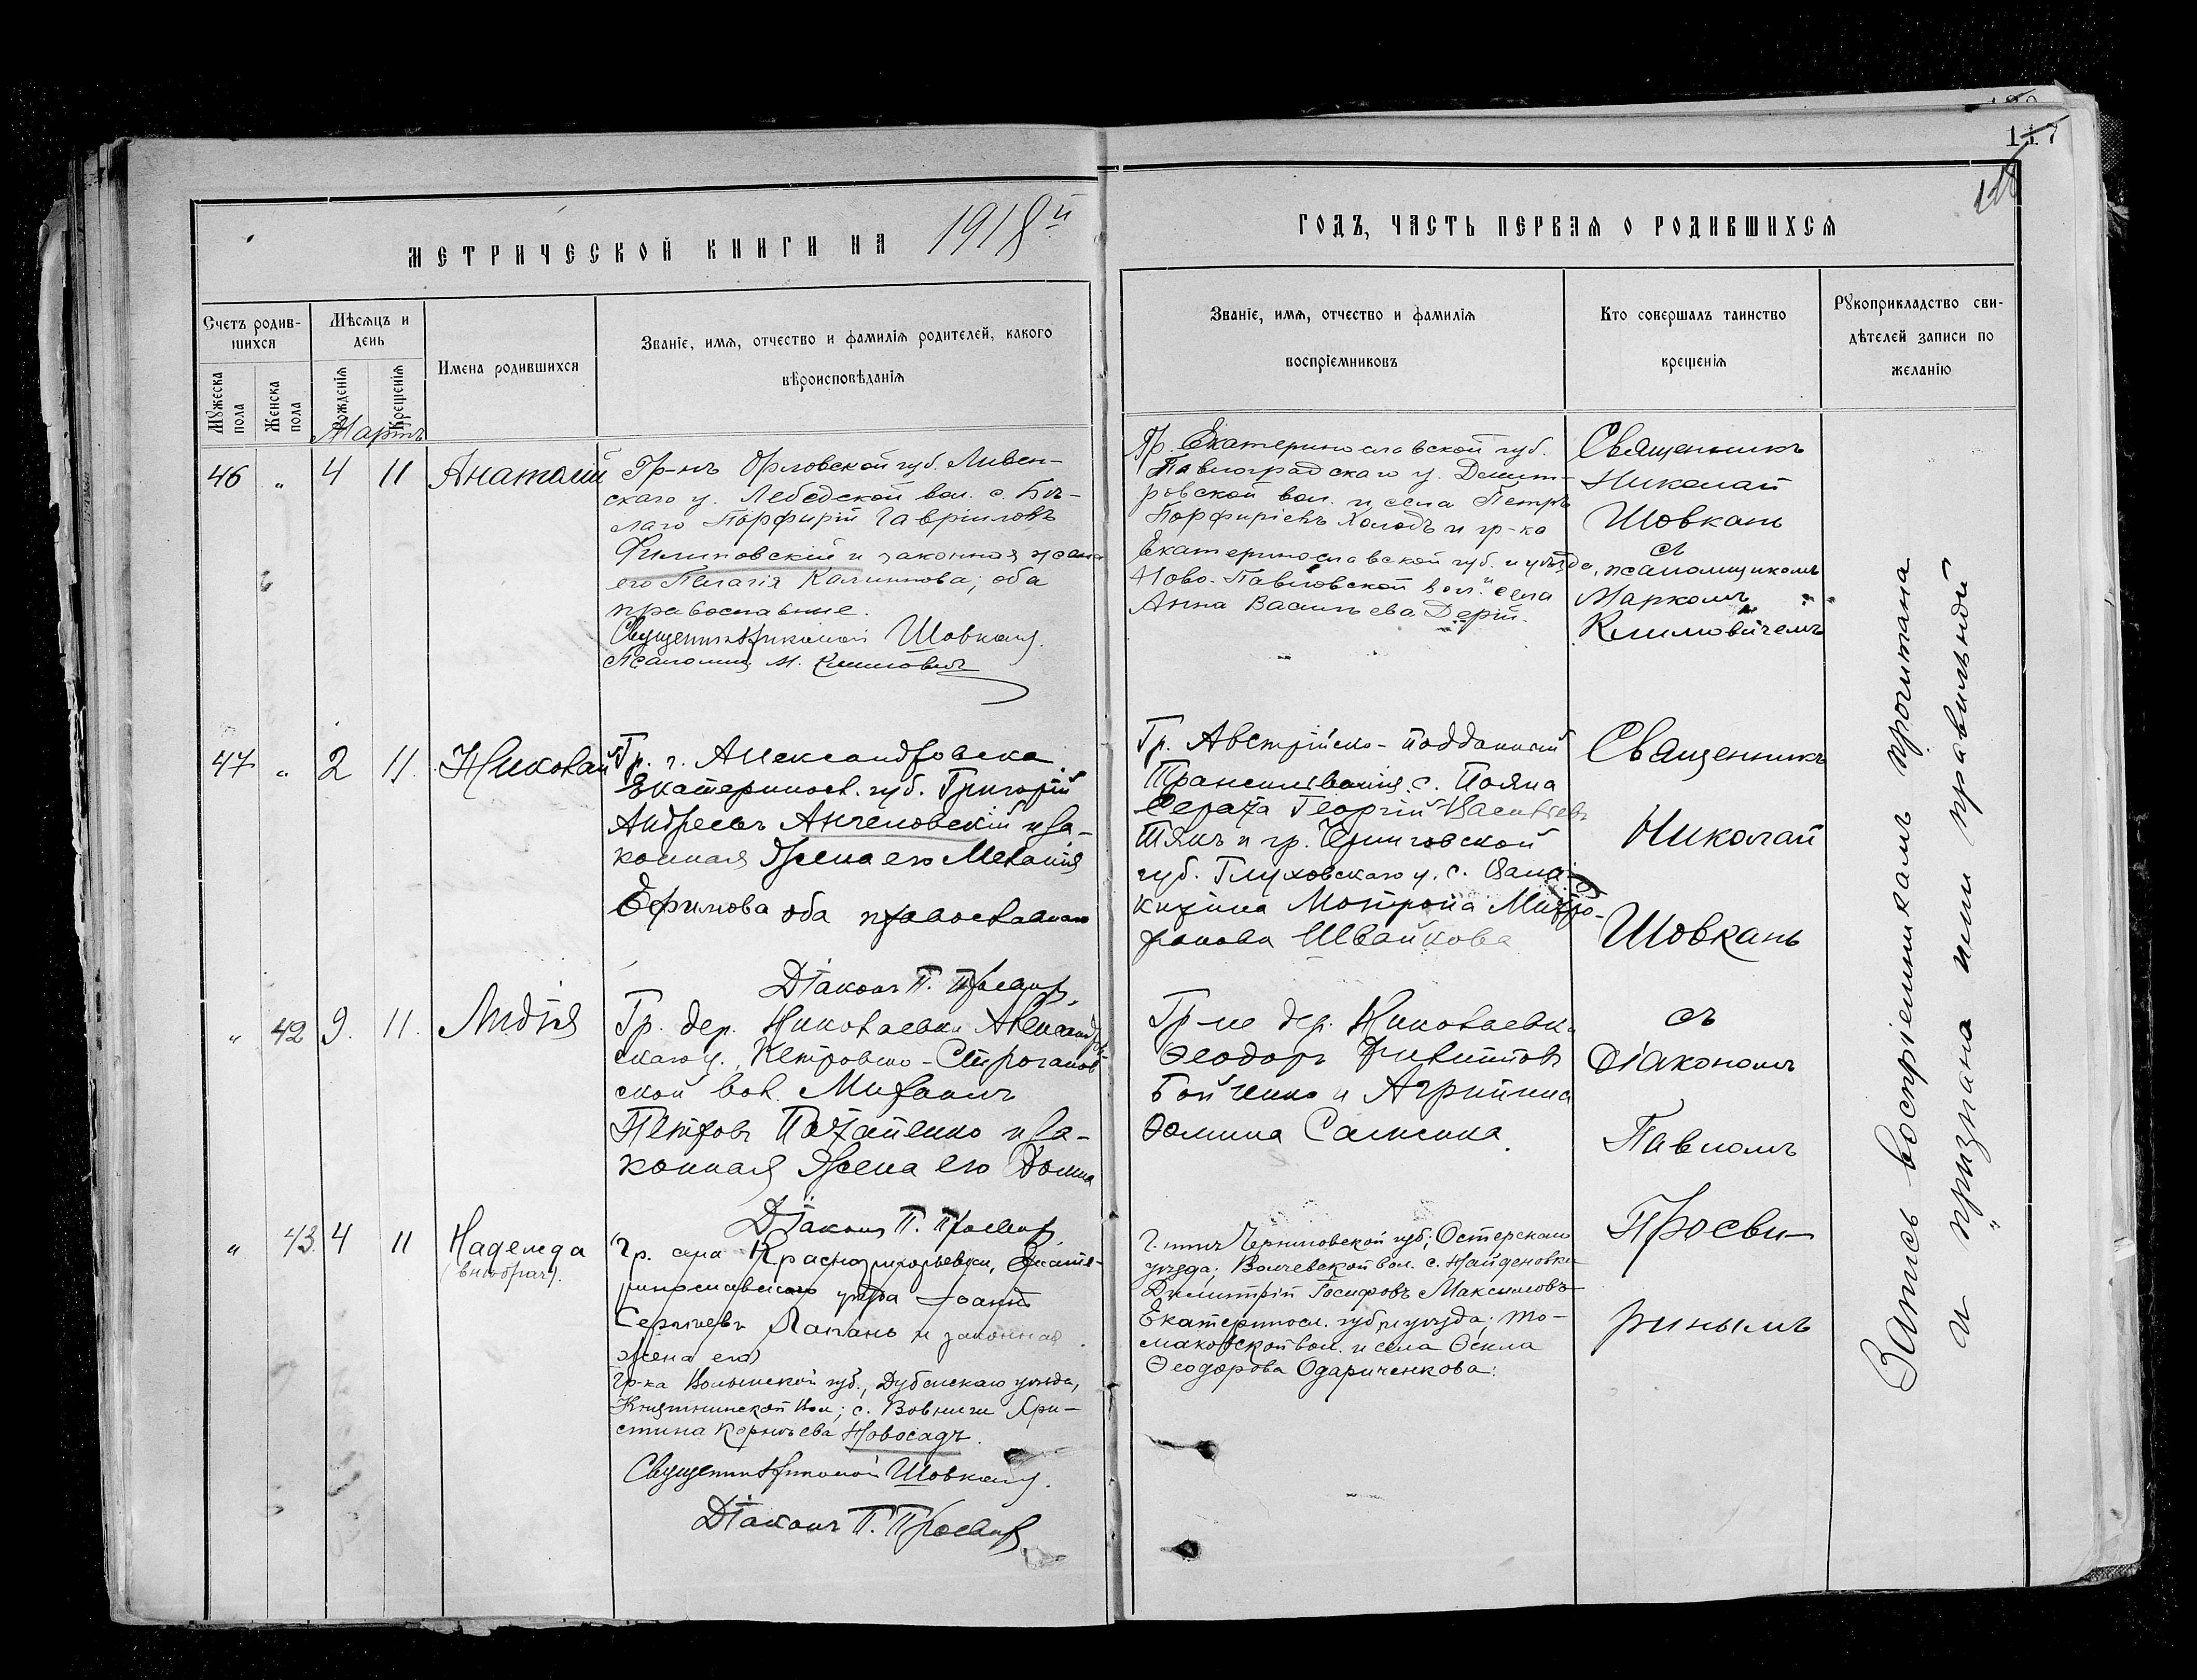 117
118
МЕТРИЧЕСКОЙ КНИГИ НА 1918й
ГОДЪ, ЧАСТЬ ПЕРВАЯ О РОДИВШИХСЯ
Счетъ родив-
шихся
Мужеска пола
Женска пола
Мѣсяцъ и
день
Рожденія
Крещенія
Имена родившихся
Званіе, имя, отчество и фамилія родителей, какого
вѣроисповѣданія
Званіе, имя, отчество и фамилія
воспріемниковъ
Кто совершалъ таинство
крещенія
Рукоприкладство сви-
дѣтелей записи по
желанію
Мартъ
46 " 4 11 Анатолій
Гр-нъ Орловской губ. Ливен-
скаго у. Лебедской вол. с. Бѣ-
лаго Порфирій Гавріиловъ
Филиповскій и законная жена
его Пелагія Калинова; оба
православные.
Священникъ Николай Шовкань.
Псаломщ. М. Климовичъ
Гр. Екатеринославской губ.
Павлоградскаго у. Дмит-
ровской вол. и села Петръ
Порфиріевъ Холодъ и гр-ка
Екатеринославской губ. и уѣзда,
Ново-Павловской вол. и села
Анна Васильева Дерій.
Священникъ
Николай
Шовкань
съ
псаломщикомъ
Маркомъ
Климовичемъ
47 " 2 11. Николай
Гр. г. Александровска
Екатериносл. губ. Григорій
Андреевъ Анчеловскій и за-
конная жена его Меланія
Ефимова оба православные
Діаконъ П. Просвир.
Гр. Австрійско-подданный
Трансильванія с. Пояна
Георгій Васильевъ
и гр. Черниговской
губ. Глуховскаго у. с.
Мотрона Митро-
фанова Швайкова
Священникъ
Николай
Шовкань
" 42 9. 11. Лидія
Гр. дер. Николаевки Александров-
скаго у., Петровско-Строганов-
ской вол. Михаилъ
Петровъ Потапенко и за-
конная жена его Домна
Діаконъ П. Просвир.
Гр-не дер. Николаевки
Ѳеодоръ Филипповъ
Бойченко и Агрипина
Ѳомина Сальсина.
съ
Діакономъ
Павломъ
" 43. 4 11 Надежда
(внѣбрач).
Гр. села Красногригорьевки, Екате-
ринославскаго уѣзда Іоаннъ
Сергіевъ Лапань и законная
жена его
Гр-ка Волынской губ., Дубенскаго уѣзда,
Княгининской вол; с. Вовничи Хри-
стина Корнѣева Новосадъ.
Священникъ Николай Шовкань.
Діаконъ П. Просвир.
Г-нинъ Черниговской губ; Остерскаго
уѣзда; Волчевской вол. с. Найденовки
Димитрій Іосифовъ Максимовъ
Екатериносл. губ. и уѣзда; То-
маковской вол. и села Ѳекла
Ѳеодорова Одариченкова.
Просви-
ринымъ
Запись воспріемникамъ прочитана
и признана ими правильной